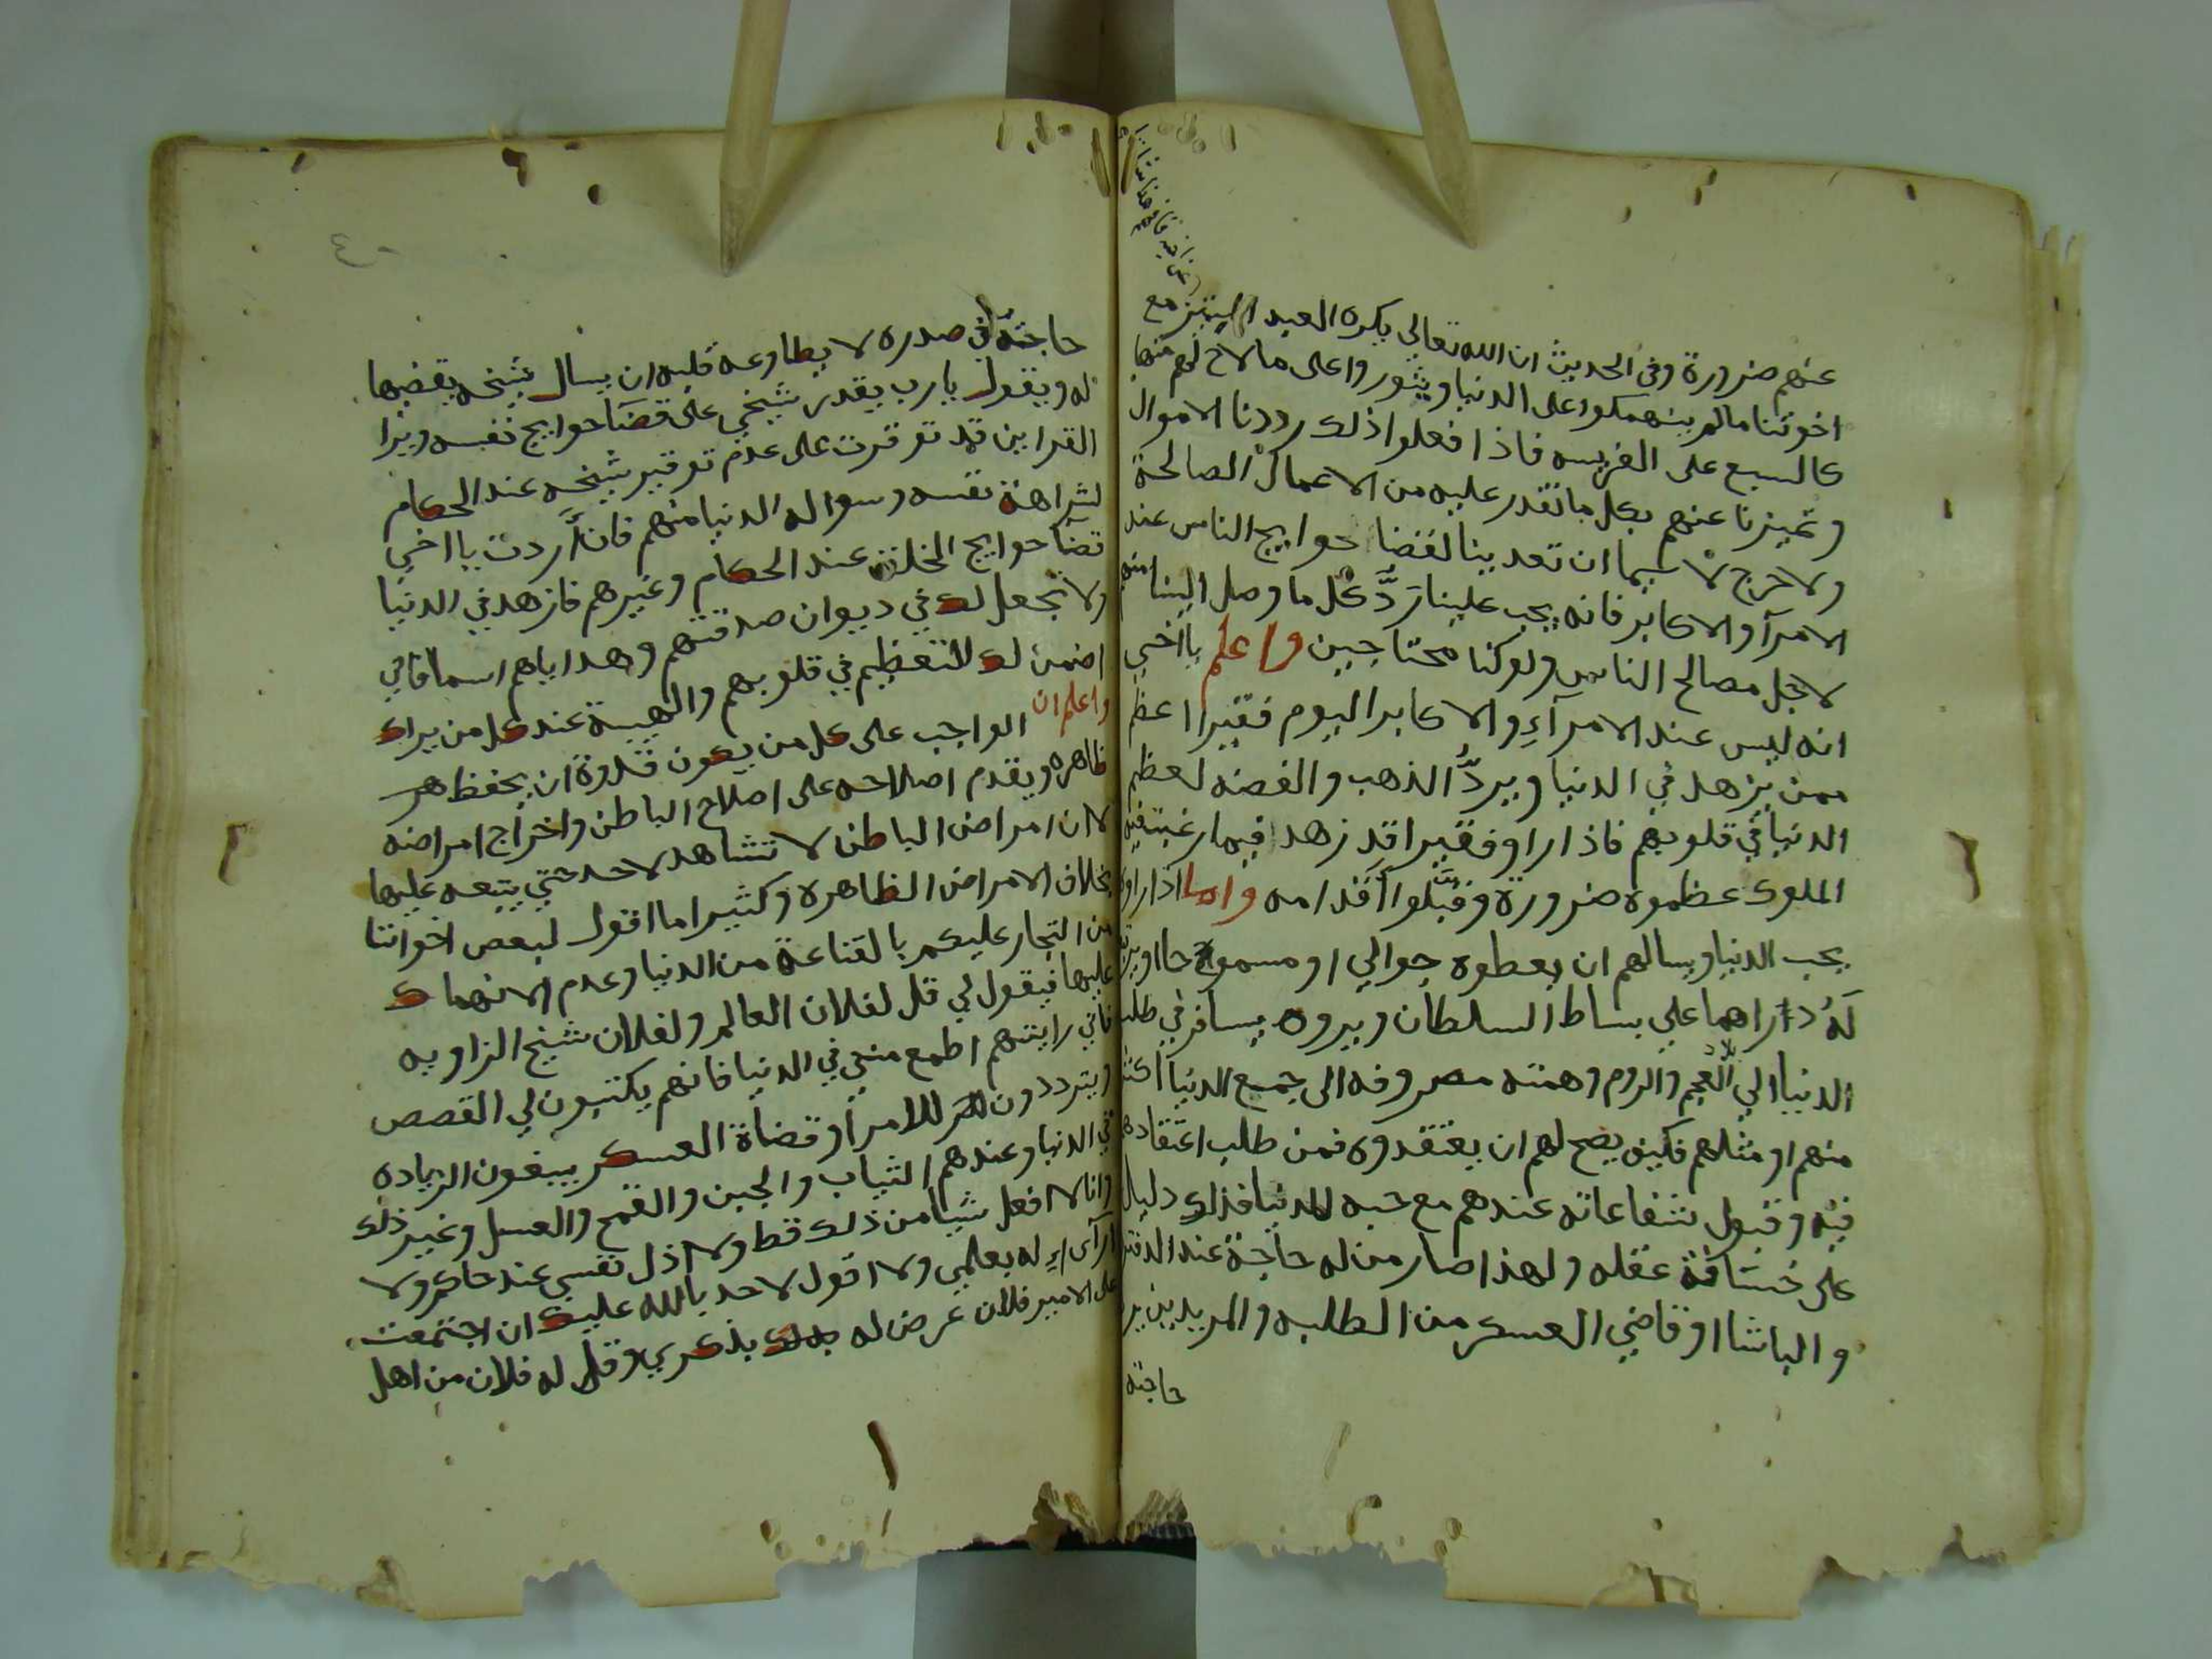 عنهم ضرورة وفي الحديث ان الله تعالى يكره العبد المتميز مع
اخوتنا مالم ينهمكوا على الدنيا ويثوروا على ما لاح لهم منها
كالسبع على الفريسه فاذا فعلوا ذلك رددنا الاموال
وتميزنا عنهم بكل ما نقدر عليه من الاعمال الصالحة
ولا حرج لا سيما ان تصدينا لقضا حوايج الناس عند
الامرآ والاكابر فانه يجب علينا ردّ كل ما وصل الينا منهم
لاجل مصالح الناس ولو كنا محتاجين واعلم يا اخي
انه ليس عند الامرآء والاكابر اليوم فقيرا اعظم
ممن يزهد في الدنيا ويردّ الذهب والفضه لعظم
الدنيا في قلوبهم فاذا راو فقيرا قد زهد فيما رغبت فيه
الملوك عظموه ضرورة وقبّلوا اقدامه واما اذا راوه
يحب الدنيا ويسالهم ان يعطوه جوالي او مسموحا او يرتبوا
له دراهما علي بساط السلطان ويروه يسافر في طلب
الدنيا الي بلاد العجم والروم وهمته مصروفه الى جميع الدنيا اكثر
منهم او مثلهم فكيف يصح لهم ان يعتقدوه فمن طلب اعتقادهم
فيه وقبول شفاعاته عندهم مع حبه للدنيا فذلك دليل
على خسافة عقله ولهذا صار من له حاجة عند الدفتر
والباشا او قاضي العسكر من الطلبه والمريدين ير
حاجته
٤٠
حاجته في صدره لا يطاوعه قلبه ان يسال شيخه يقضيها
له ويقول يارب يقدر شيخي على قضآ حوايج نفسه ويرا
القراين قد توفرت على عدم توقير شيخه عند الحكام
لشراهة نفسه وسواله الدنيا منهم فان اردت يا اخي
قضآ حوايج الخلق عند الحكام وغيرهم فازهد في الدنيا
ولا تجعل لك في ديوان صدقتهم وهداياهم اسما فاني
اضمن لك التعظيم في قلوبهم والهيبة عند كل من يراك
واعلم ان الواجب على كل من يكون قدوة ان يحفظ
ظاهره ويقدم اصلاحه على اصلاح الباطن واخراج امراضه
لان امراض الباطن لا تشاهد لاحد حتي يتبعه عليها
بخلاف الامراض الظاهرة وكثيرا ما اقول لبعض اخواننا
من التجار عليكم بالقناعة من الدنيا وعدم الانهماك
عليها فيقول لي قل لفلان العالم ولفلان شيخ الزاويه
فاني رايتهم اطمع مني في الدنيا فانهم يكتبون لي القصص
ويترددون للامرآ وقضاة العسكر يبغون الزياده
في الدنيا وعندهم الثياب والجبن والقمح والعسل وغير ذلك
وانا لا افعل شيا من ذلك قط ولا اذل نفسي عند حاكم ولا
ارآءاء له بعلمي ولا اقول لاحد بالله عليك ان اجتمعت
على الامير فلان عرض له بذكري وقل له فلان من اهل